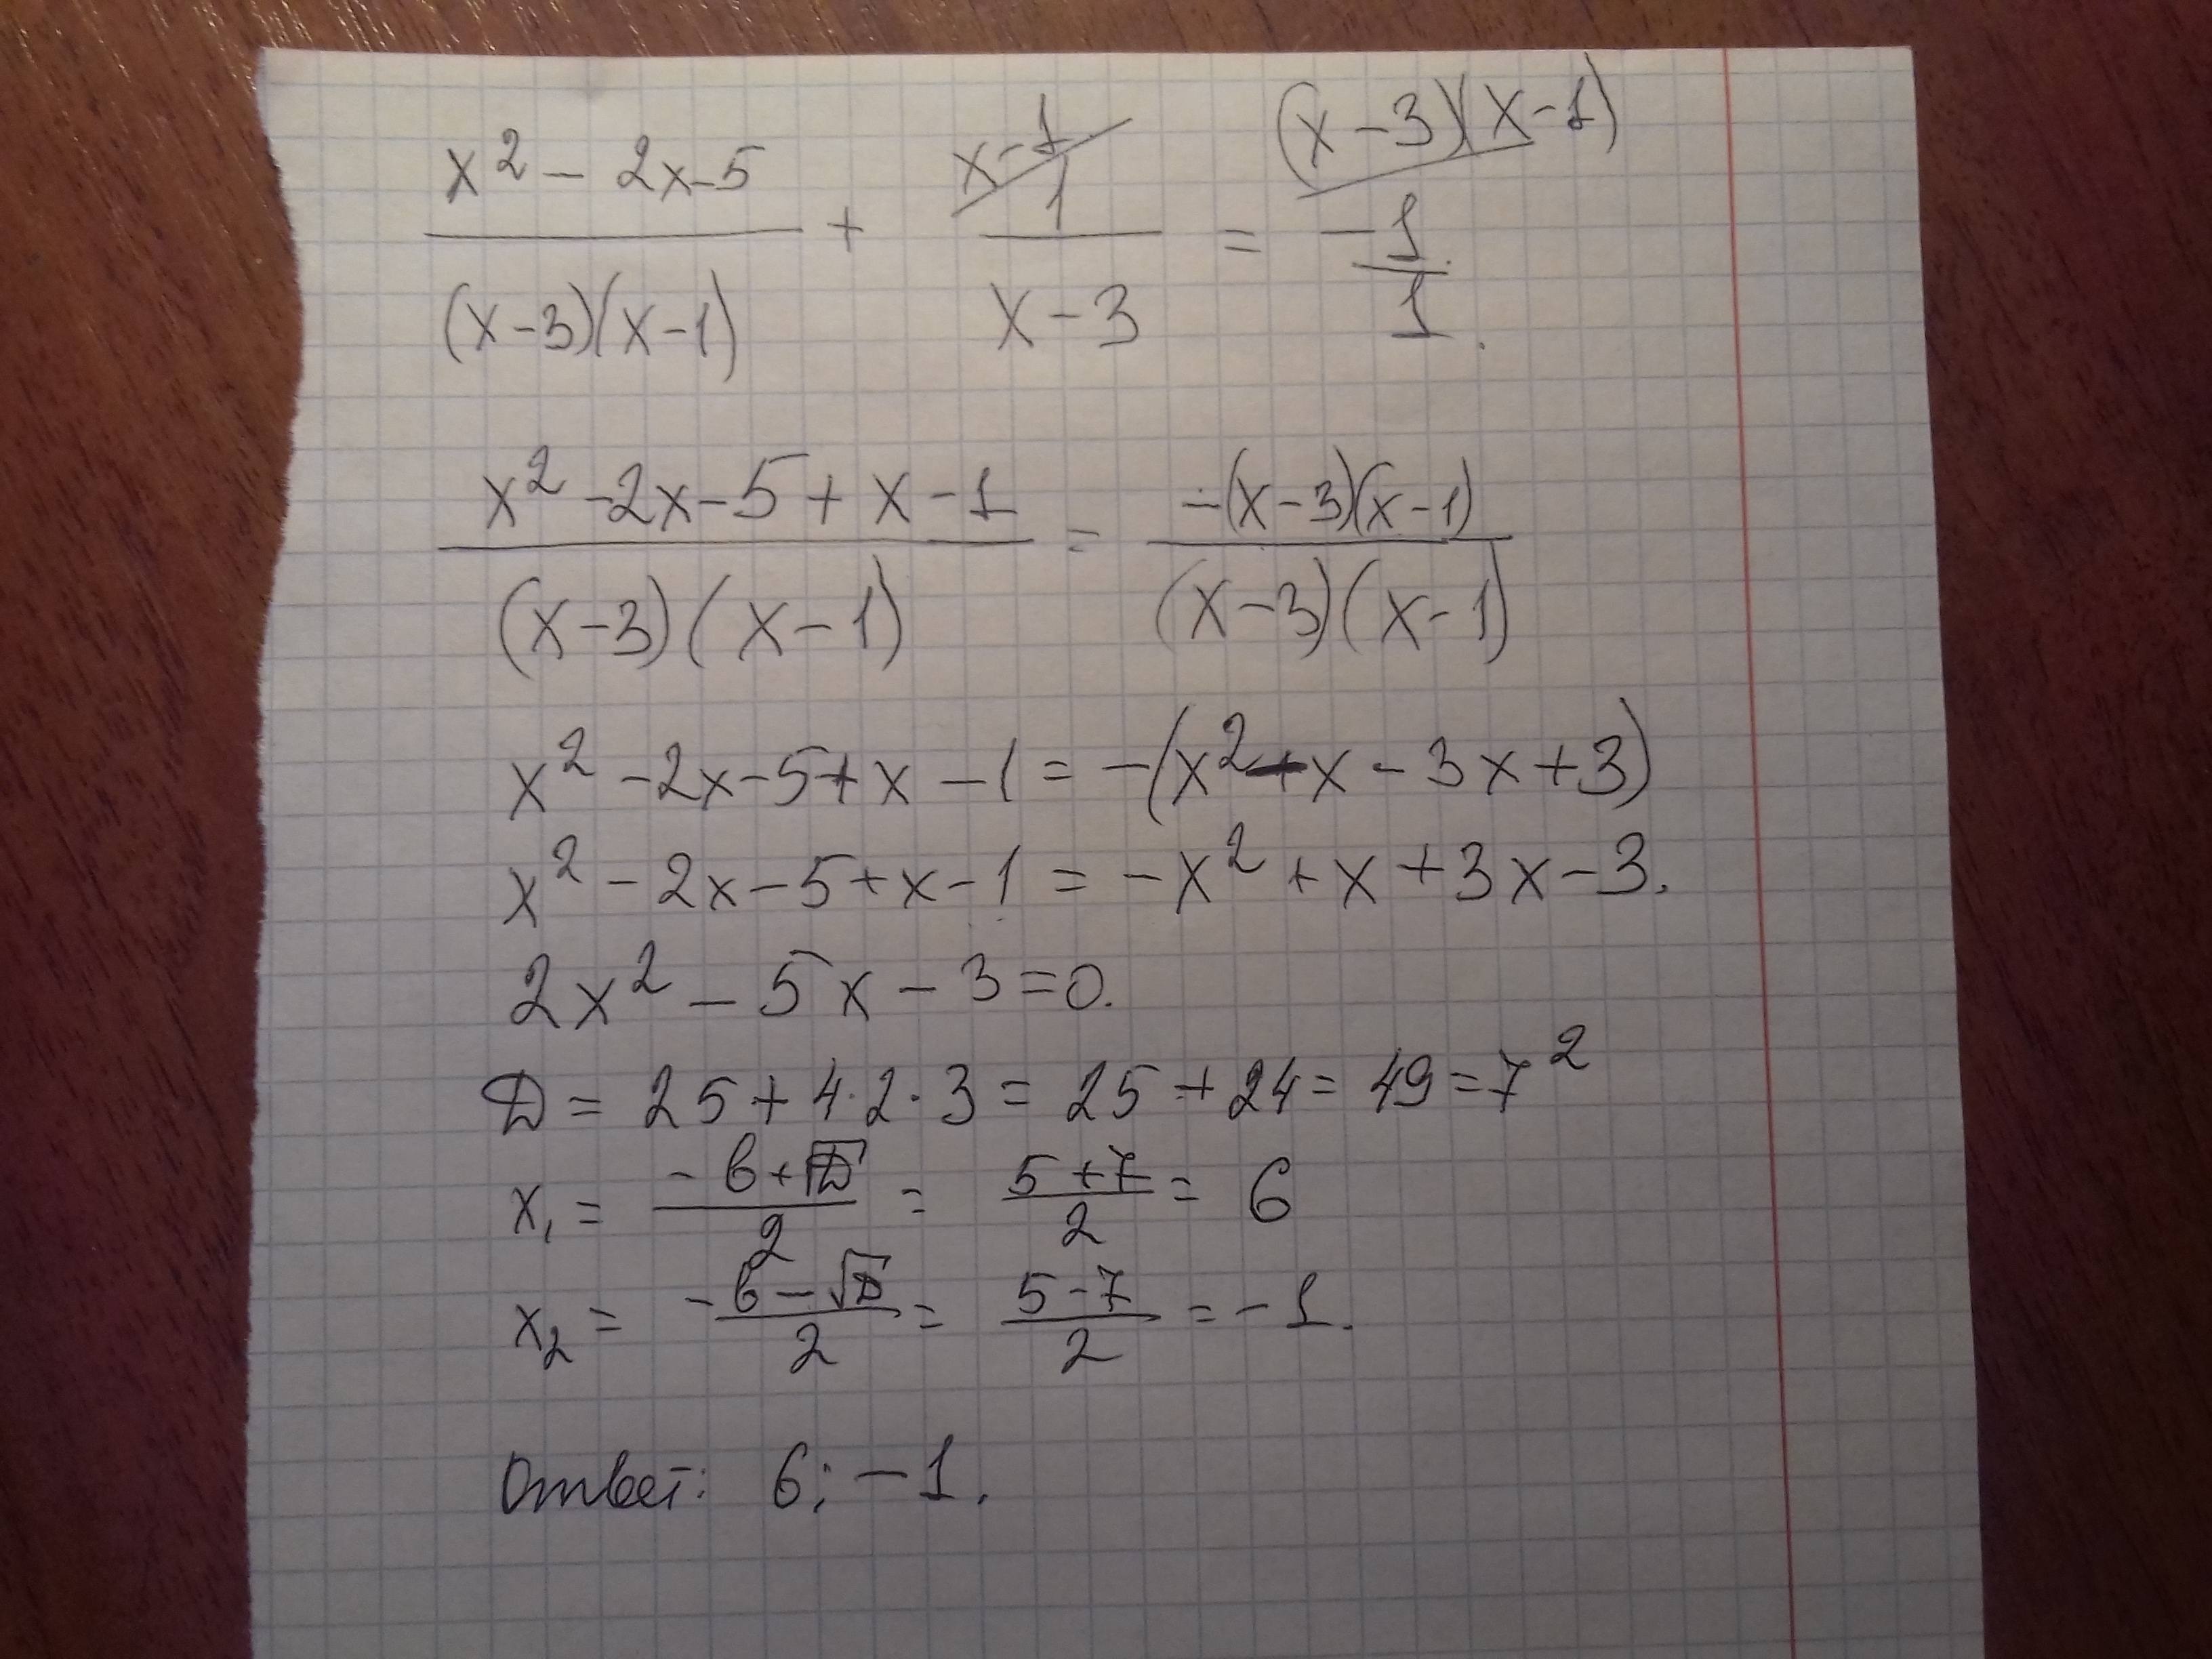 x² - 2x-5 / (x-3)(x-1) + x-1/ 1 / x-3 = (x-3)(x-1)/ -1 / 1.
x² -2x-5+x-1 / (x-3)(x-1) = -(x-3)(x-1) / (x-3)(x-1)
x² -2x-5+x-1 = -(x²-x-3x+3)
x² -2x-5+x-1 = -x²+x+3x-3.
2x² - 5x - 3 = 0.
D = 25+4·2·3 = 25+24 = 49 = 7²
x₁ = -b+√D / 2 = 5+7 / 2 = 6
x₂ = -b-√D / 2 = 5-7 / 2 = -1.
Ответ: 6; -1.